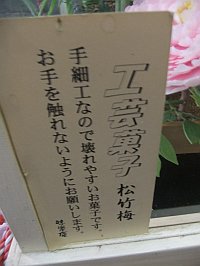 工芸菓子
松竹梅
手細工なので壊れやすいお菓子です。
お手を触れないようにお願いします。